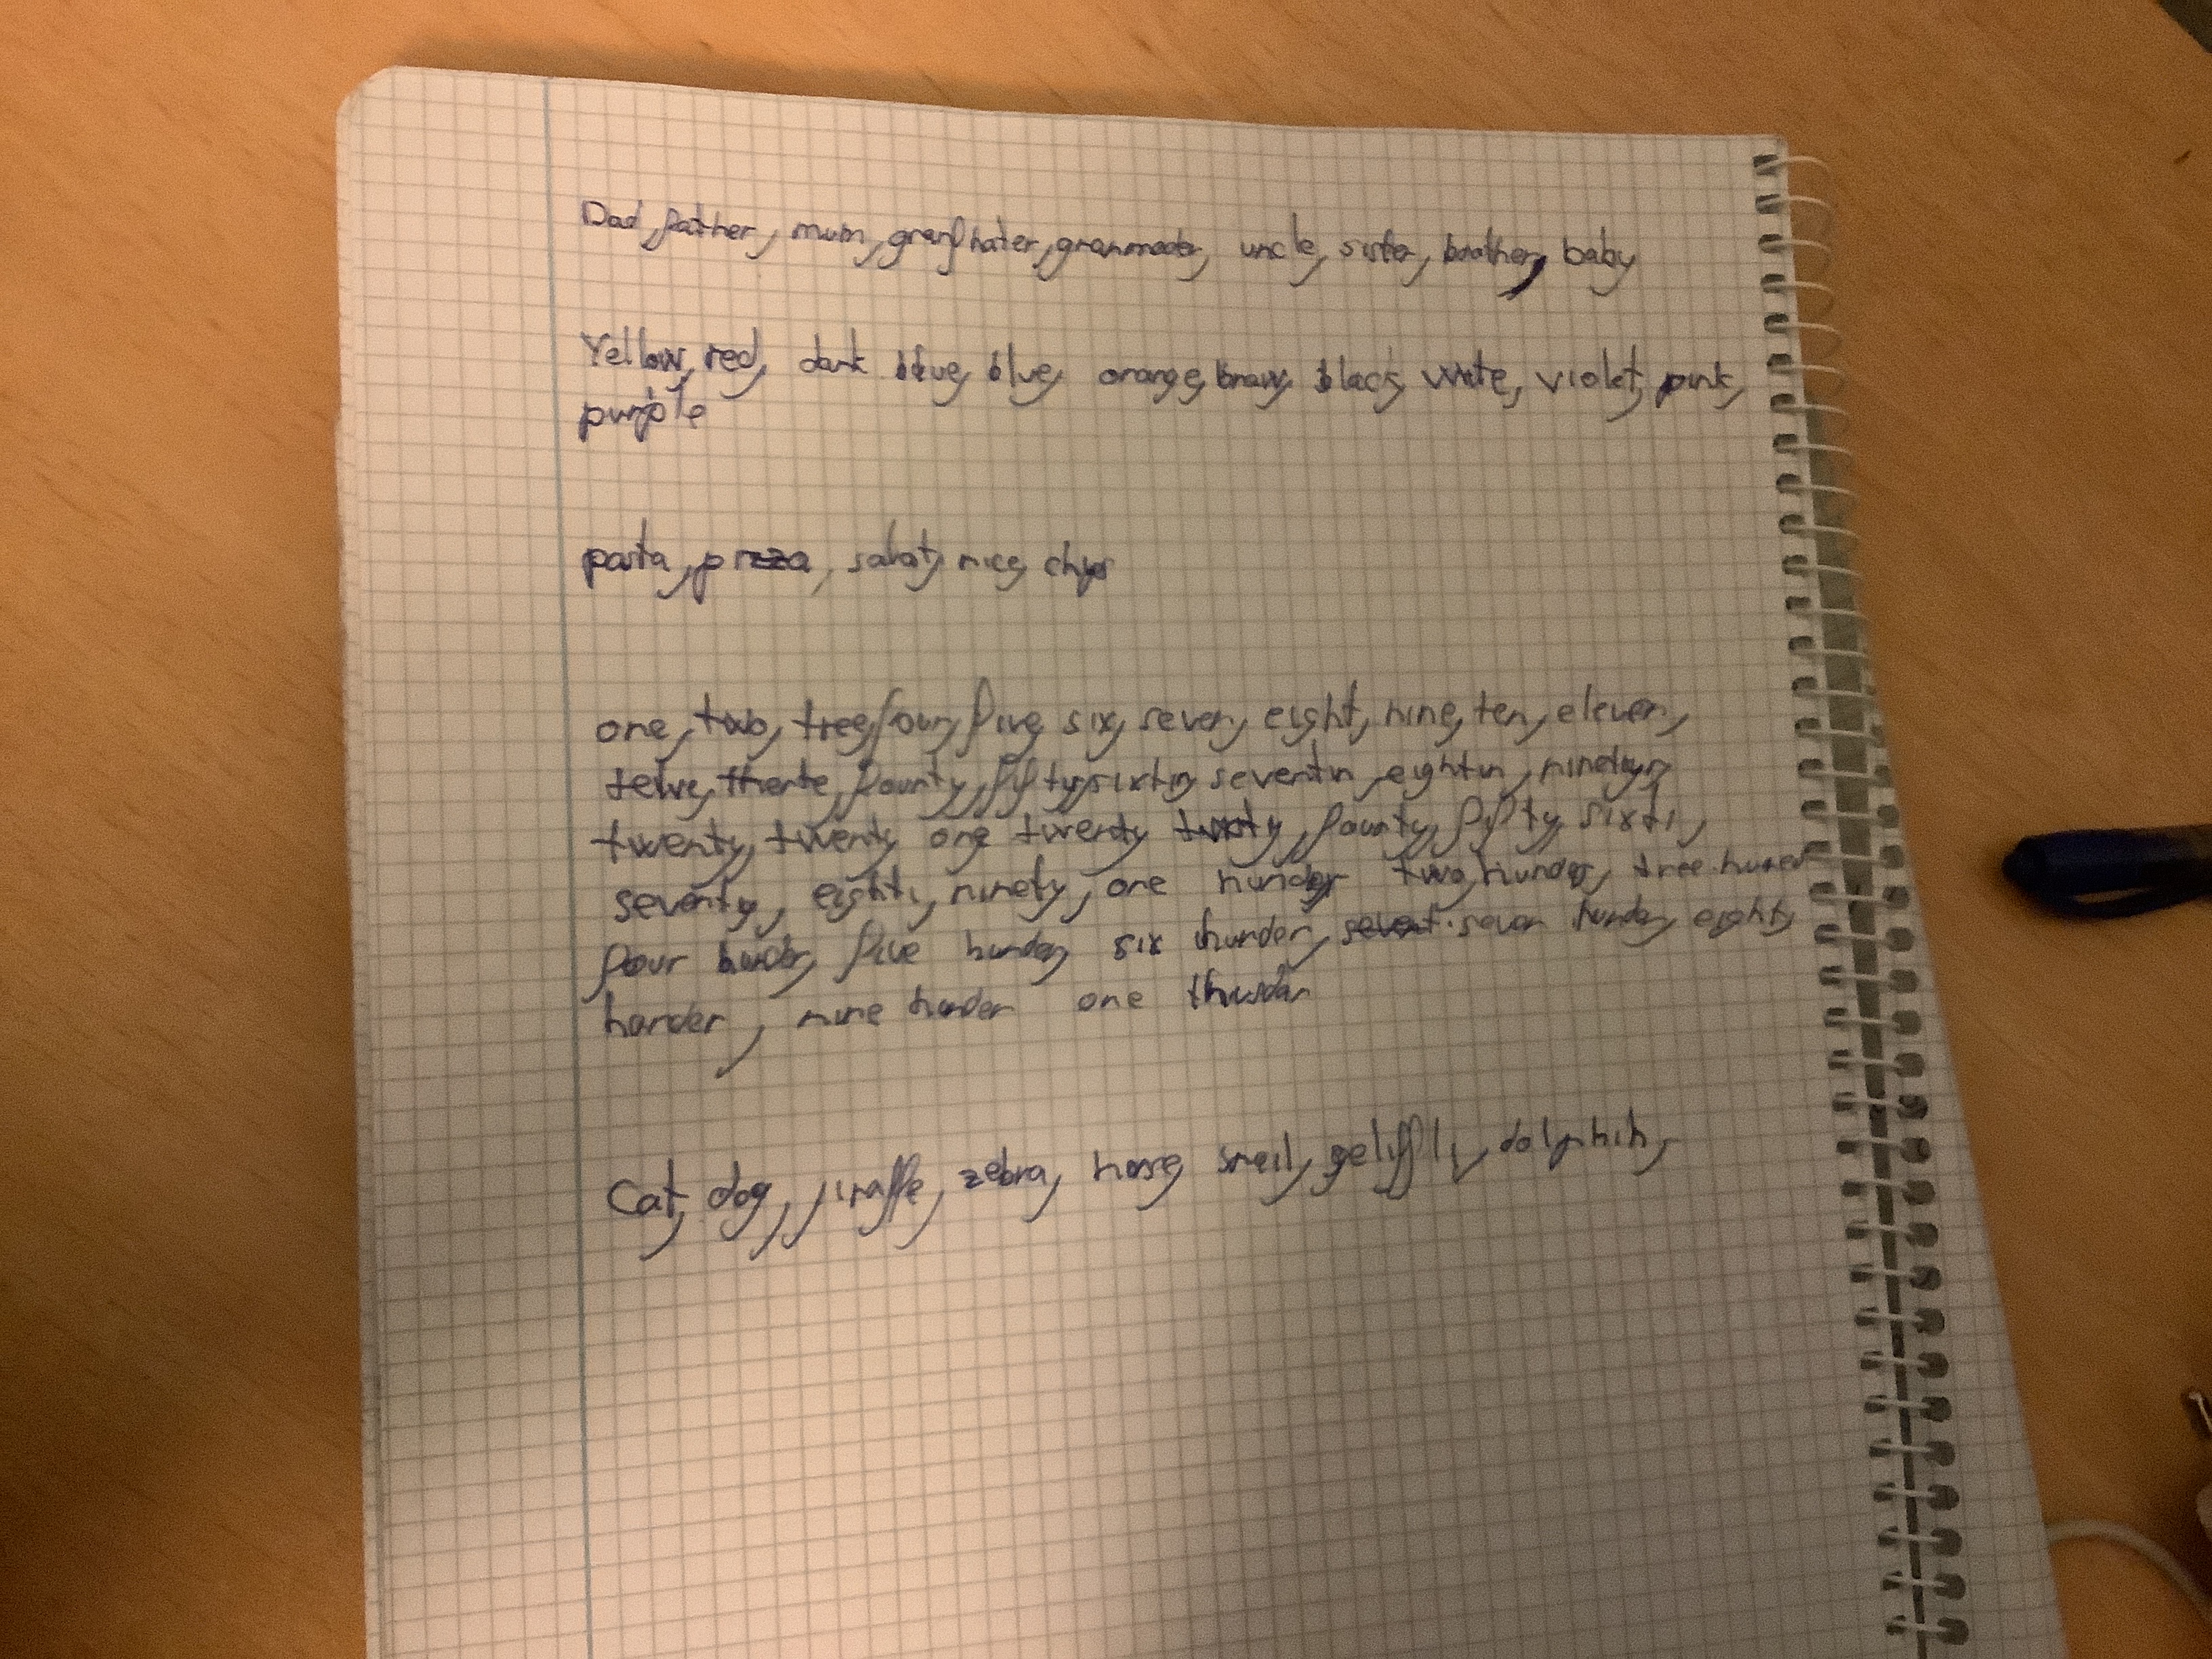 Dad, father, mum, granfhater, granmader, uncle, sister, brother, baby
Yellow, red, dark blue, blue, orange, braw, black, white, violet, pink,
purple
pasta, pizza, salat, rice, chips
one, two, tree, four, five, six, seven, eight, nine, ten, eleven,
telve, therte, founty, fifty, sixtin, seventin, eightin, ninetyn,
twenty, twenty one, twenty, founty, fifty, sixti,
seventy, eighti, ninety, one hunder, two hunder, tree hunder
four hunder, five hunder, six hunder, seven hunder, eighty
hander, nine hunder one thusdan
Cat, dog, jiraffe, zebra, horse, sneil, geliffli, dolphin,